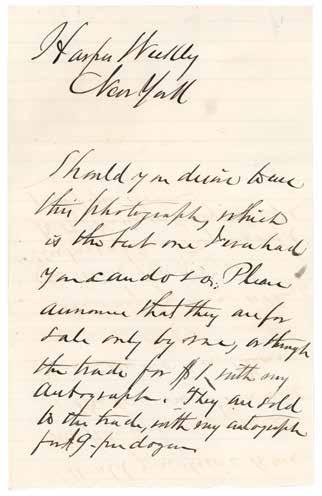 Harper Weekly
New York
Should you desire to use
this photograph, which
is the best one I ever had
you can do so. Please
announce that they are for
sale only by me, or through
the trade for $1 with my
autograph. They are sold
to the trade, with my autograph
for $9- per dozen